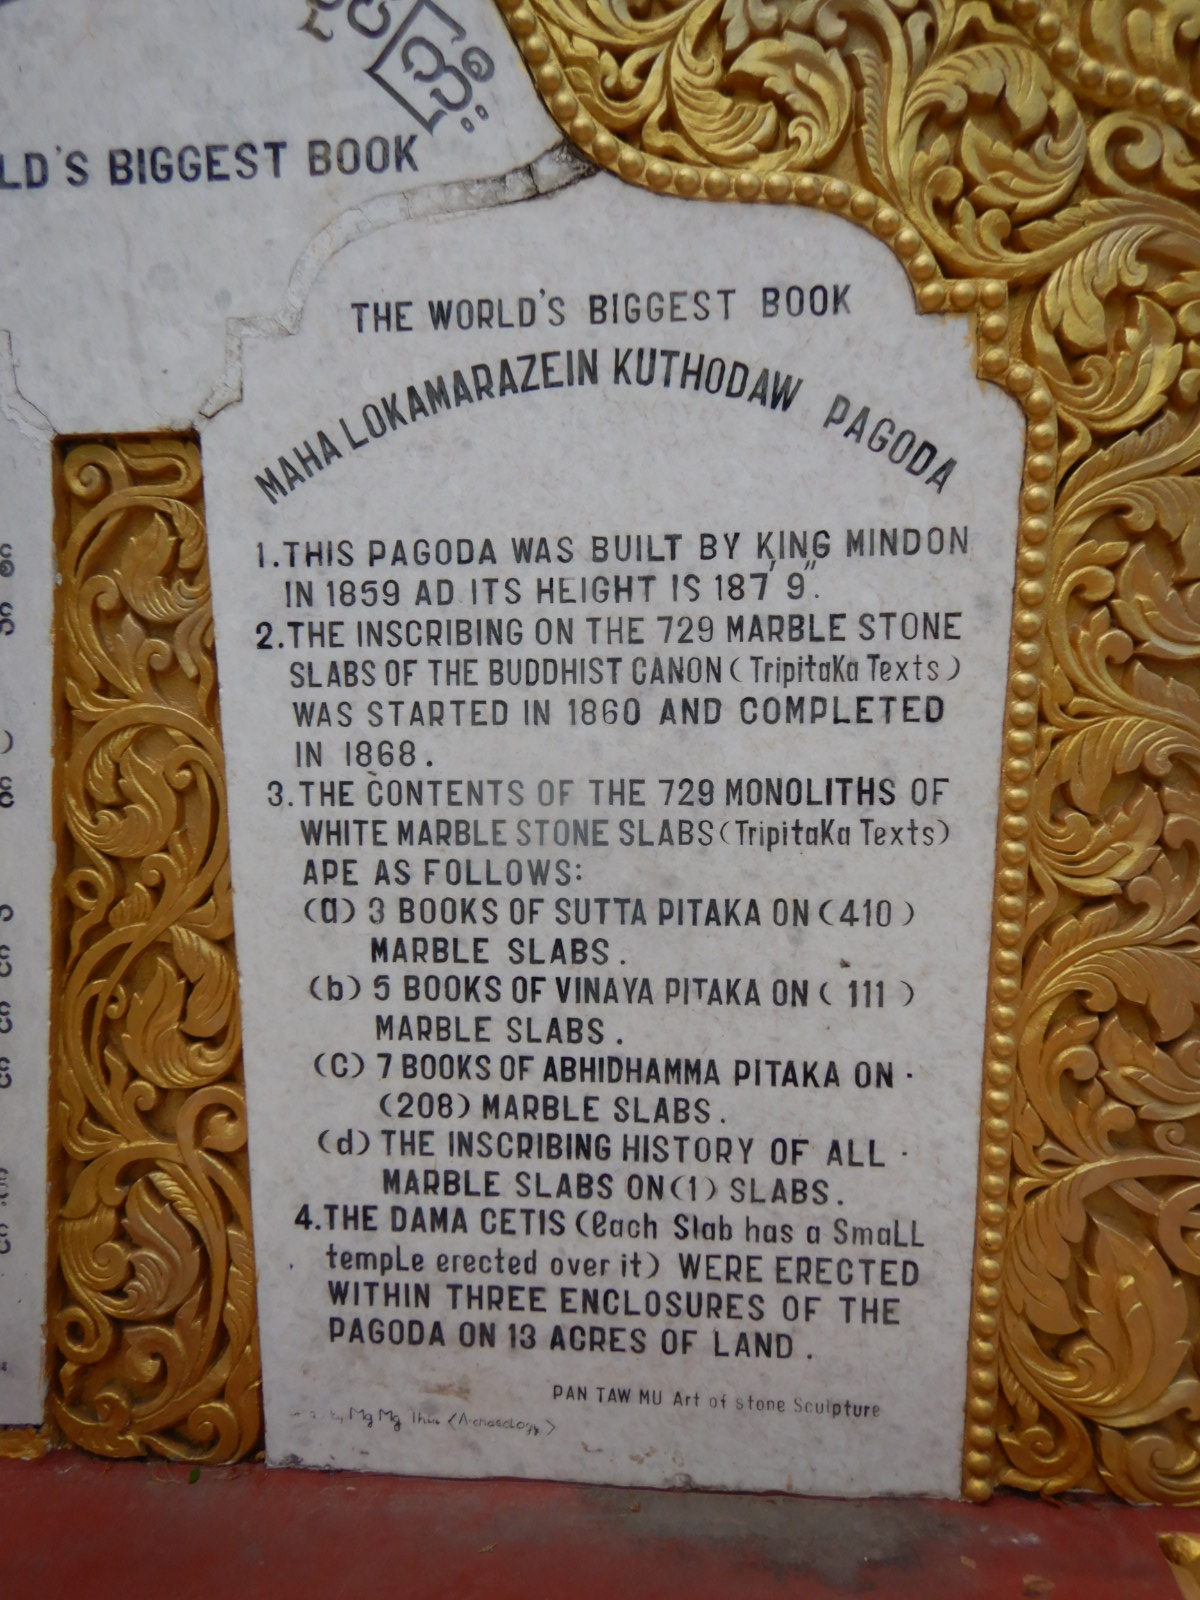 LD'S BIGGEST BOOK
THE WORLD'S BIGGEST BOOK
MAHA LOKAMARAZEIN KUTHODAW PAGODA
1. THIS PAGODA WAS BUILT BY KING MINDON
IN 1859 AD ITS HEIGHT IS 187' 9".
2. THE INSCRIBING ON THE 729 MARBLE STONE
SLABS OF THE BUDDHIST CANON (TripitaKa Texts)
WAS STARTED IN 1860 AND COMPLETED
IN 1868.
3. THE CONTENTS OF THE 729 MONOLITHS OF
WHITE MARBLE STONE SLABS (TripitaKa Texts)
APE AS FOLLOWS:
(a) 3 BOOKS OF SUTTA PITAKA ON (410)
MARBLE SLABS.
(b) 5 BOOKS OF VINAYA PITAKA ON (111)
MARBLE SLABS.
(C) 7 BOOKS OF ABHIDHAMMA PITAKA ON
(208) MARBLE SLABS.
(d) THE INSCRIBING HISTORY OF ALL
MARBLE SLABS ON (1) SLABS.
4. THE DAMA CETIS (Each Slab has a SmaLL
tempLe erected over it) WERE ERECTED
WITHIN THREE ENCLOSURES OF THE
PAGODA ON 13 ACRES OF LAND.
PAN TAW MU Art of stone Sculpture
by Mg Mg (Archaeology)